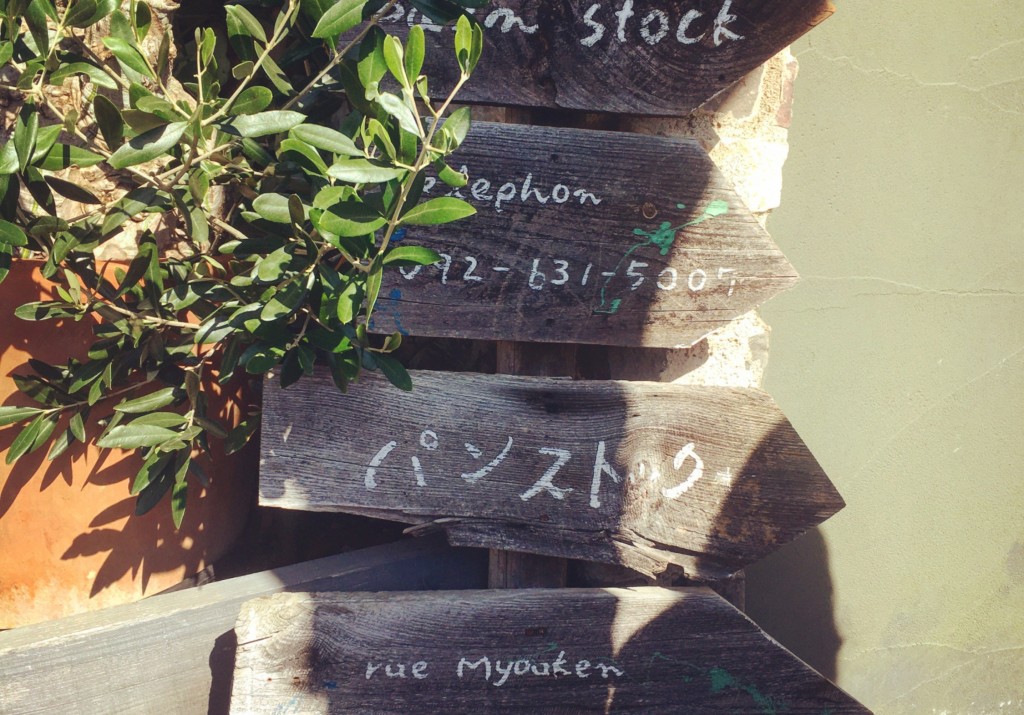 stock
telephon
092-631-5007
パンストック
rue Myouken